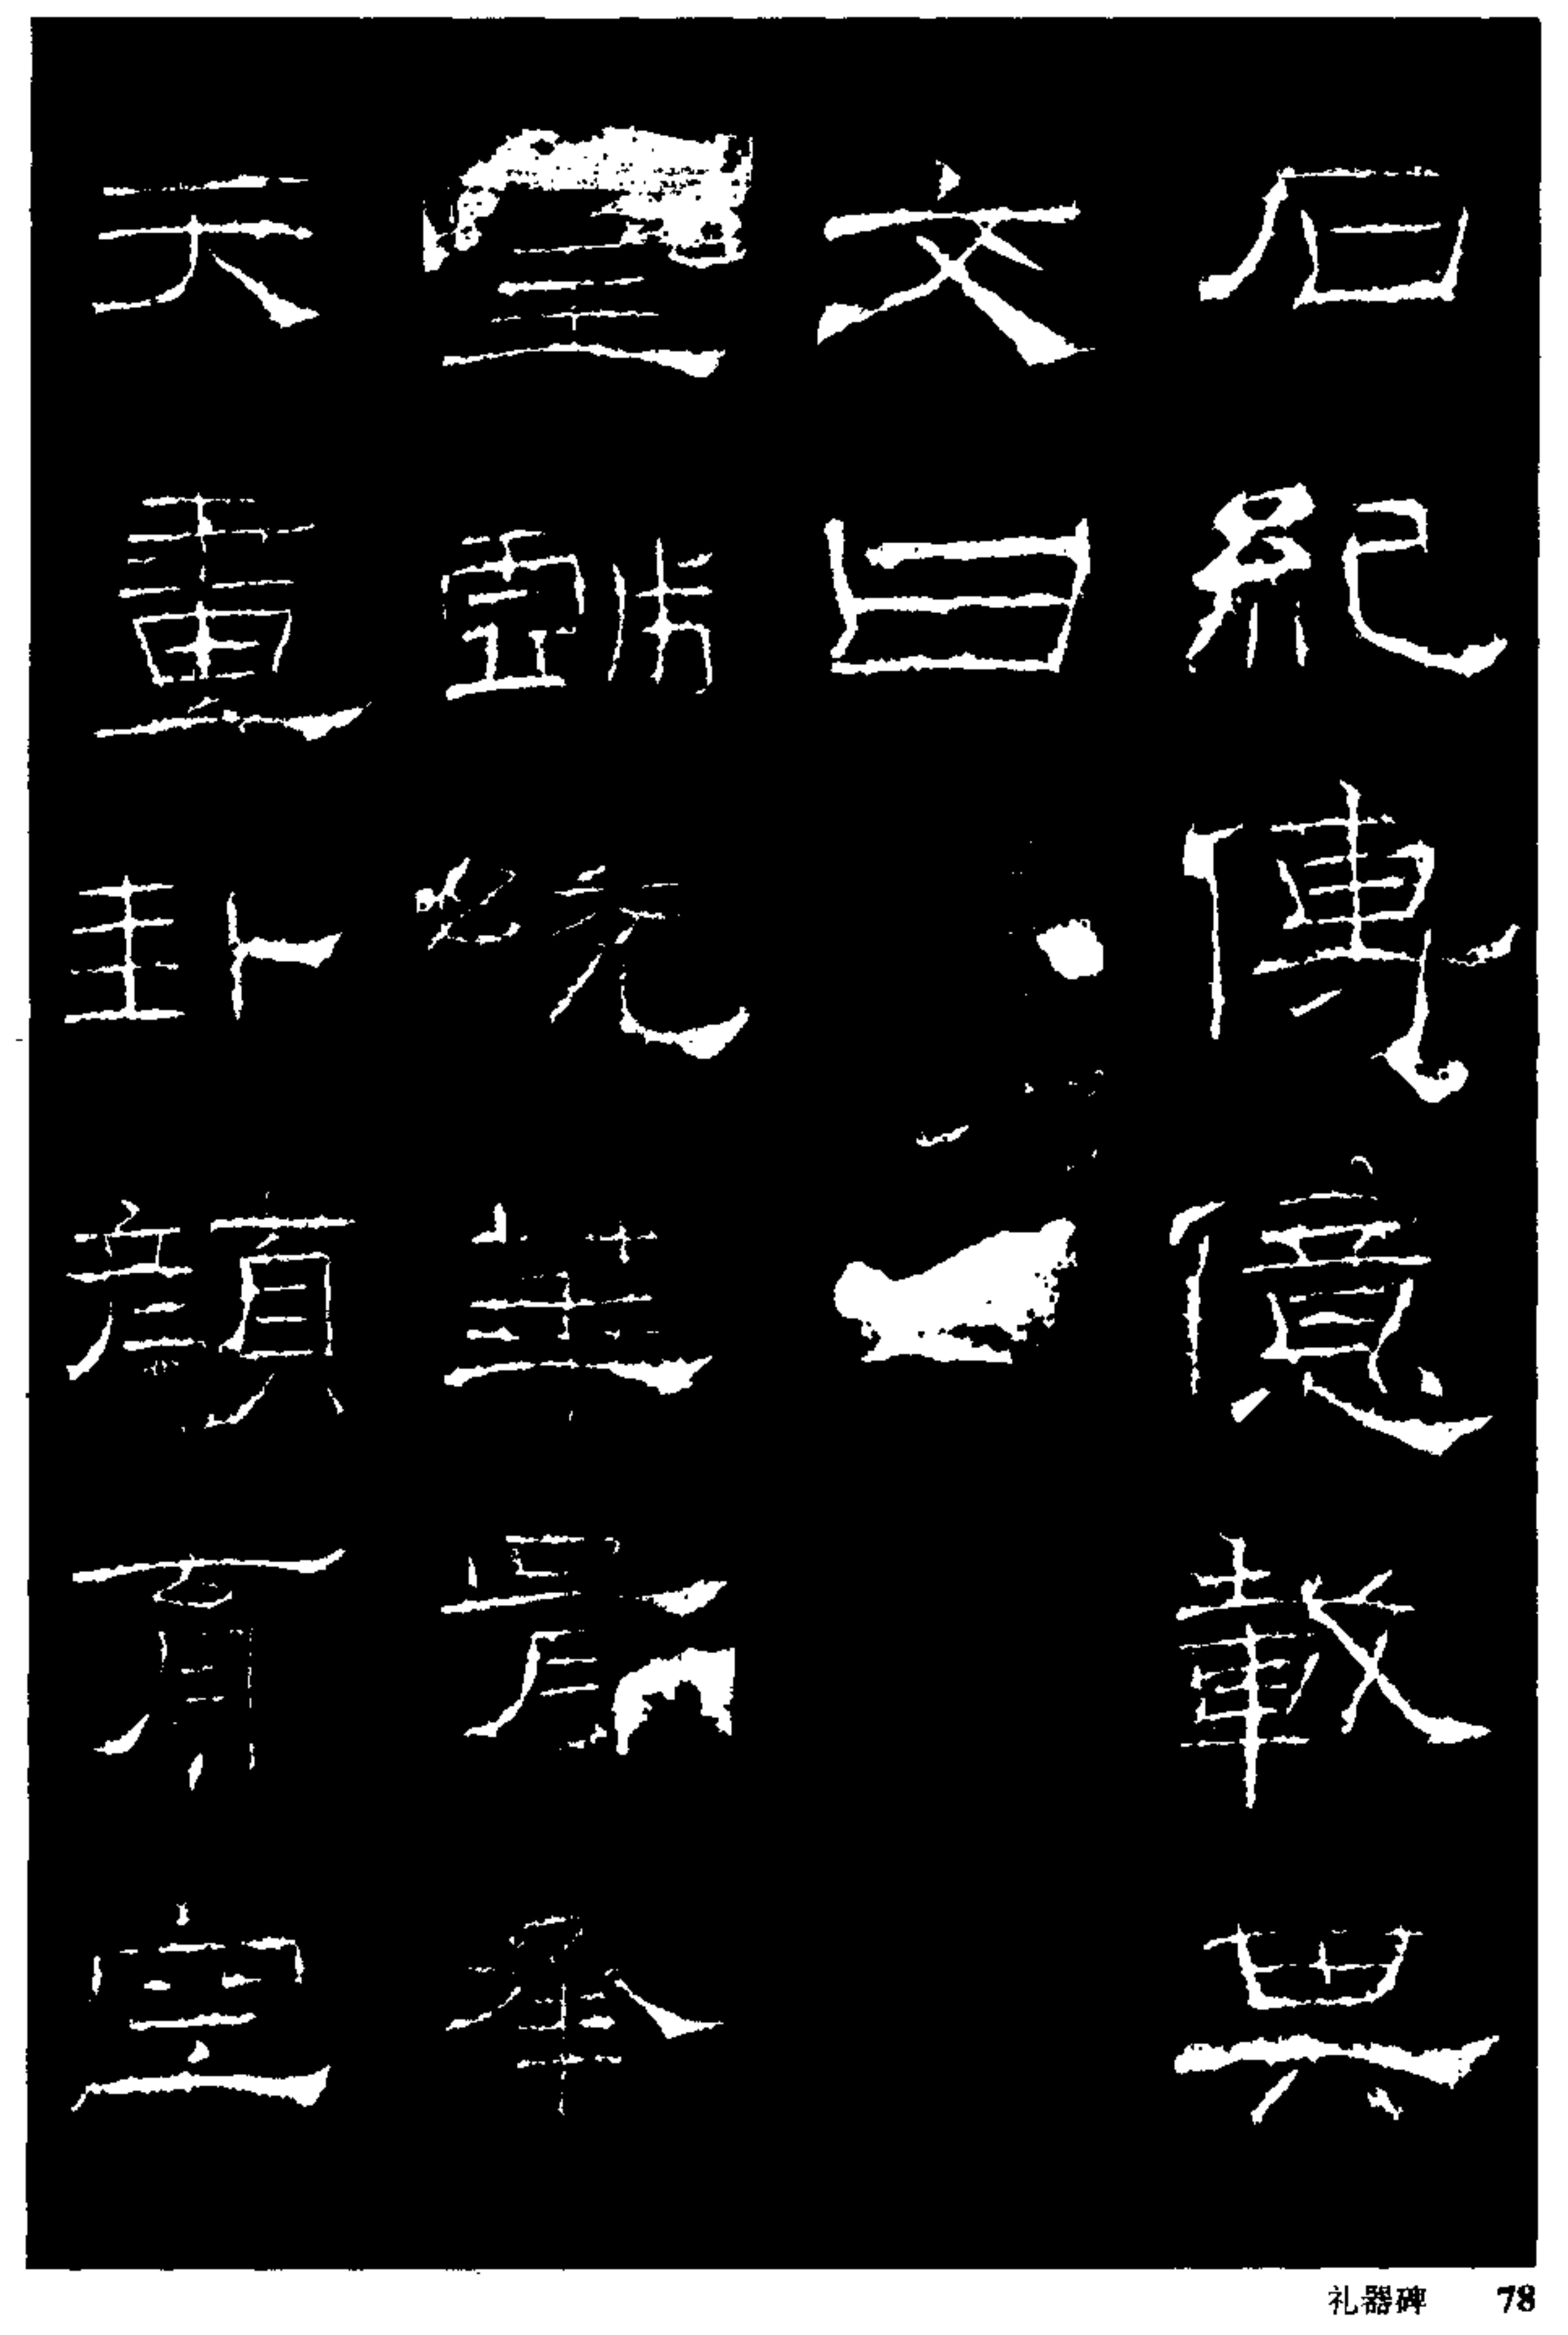 石紀傳億載其
文曰
皇戲統華胥承
天畫卦顏育空
礼器碑 78